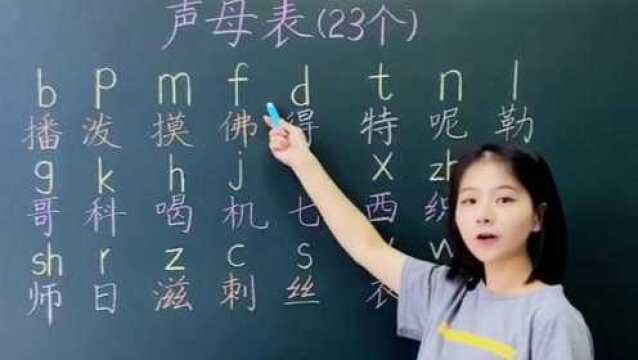 声母表(23个)
b p m f d t n l
播 泼 摸 佛 得 特 呢 勒
g k h j x zh
哥 科 喝 机 七 西 织
sh r z c s
师 日 滋 刺 丝